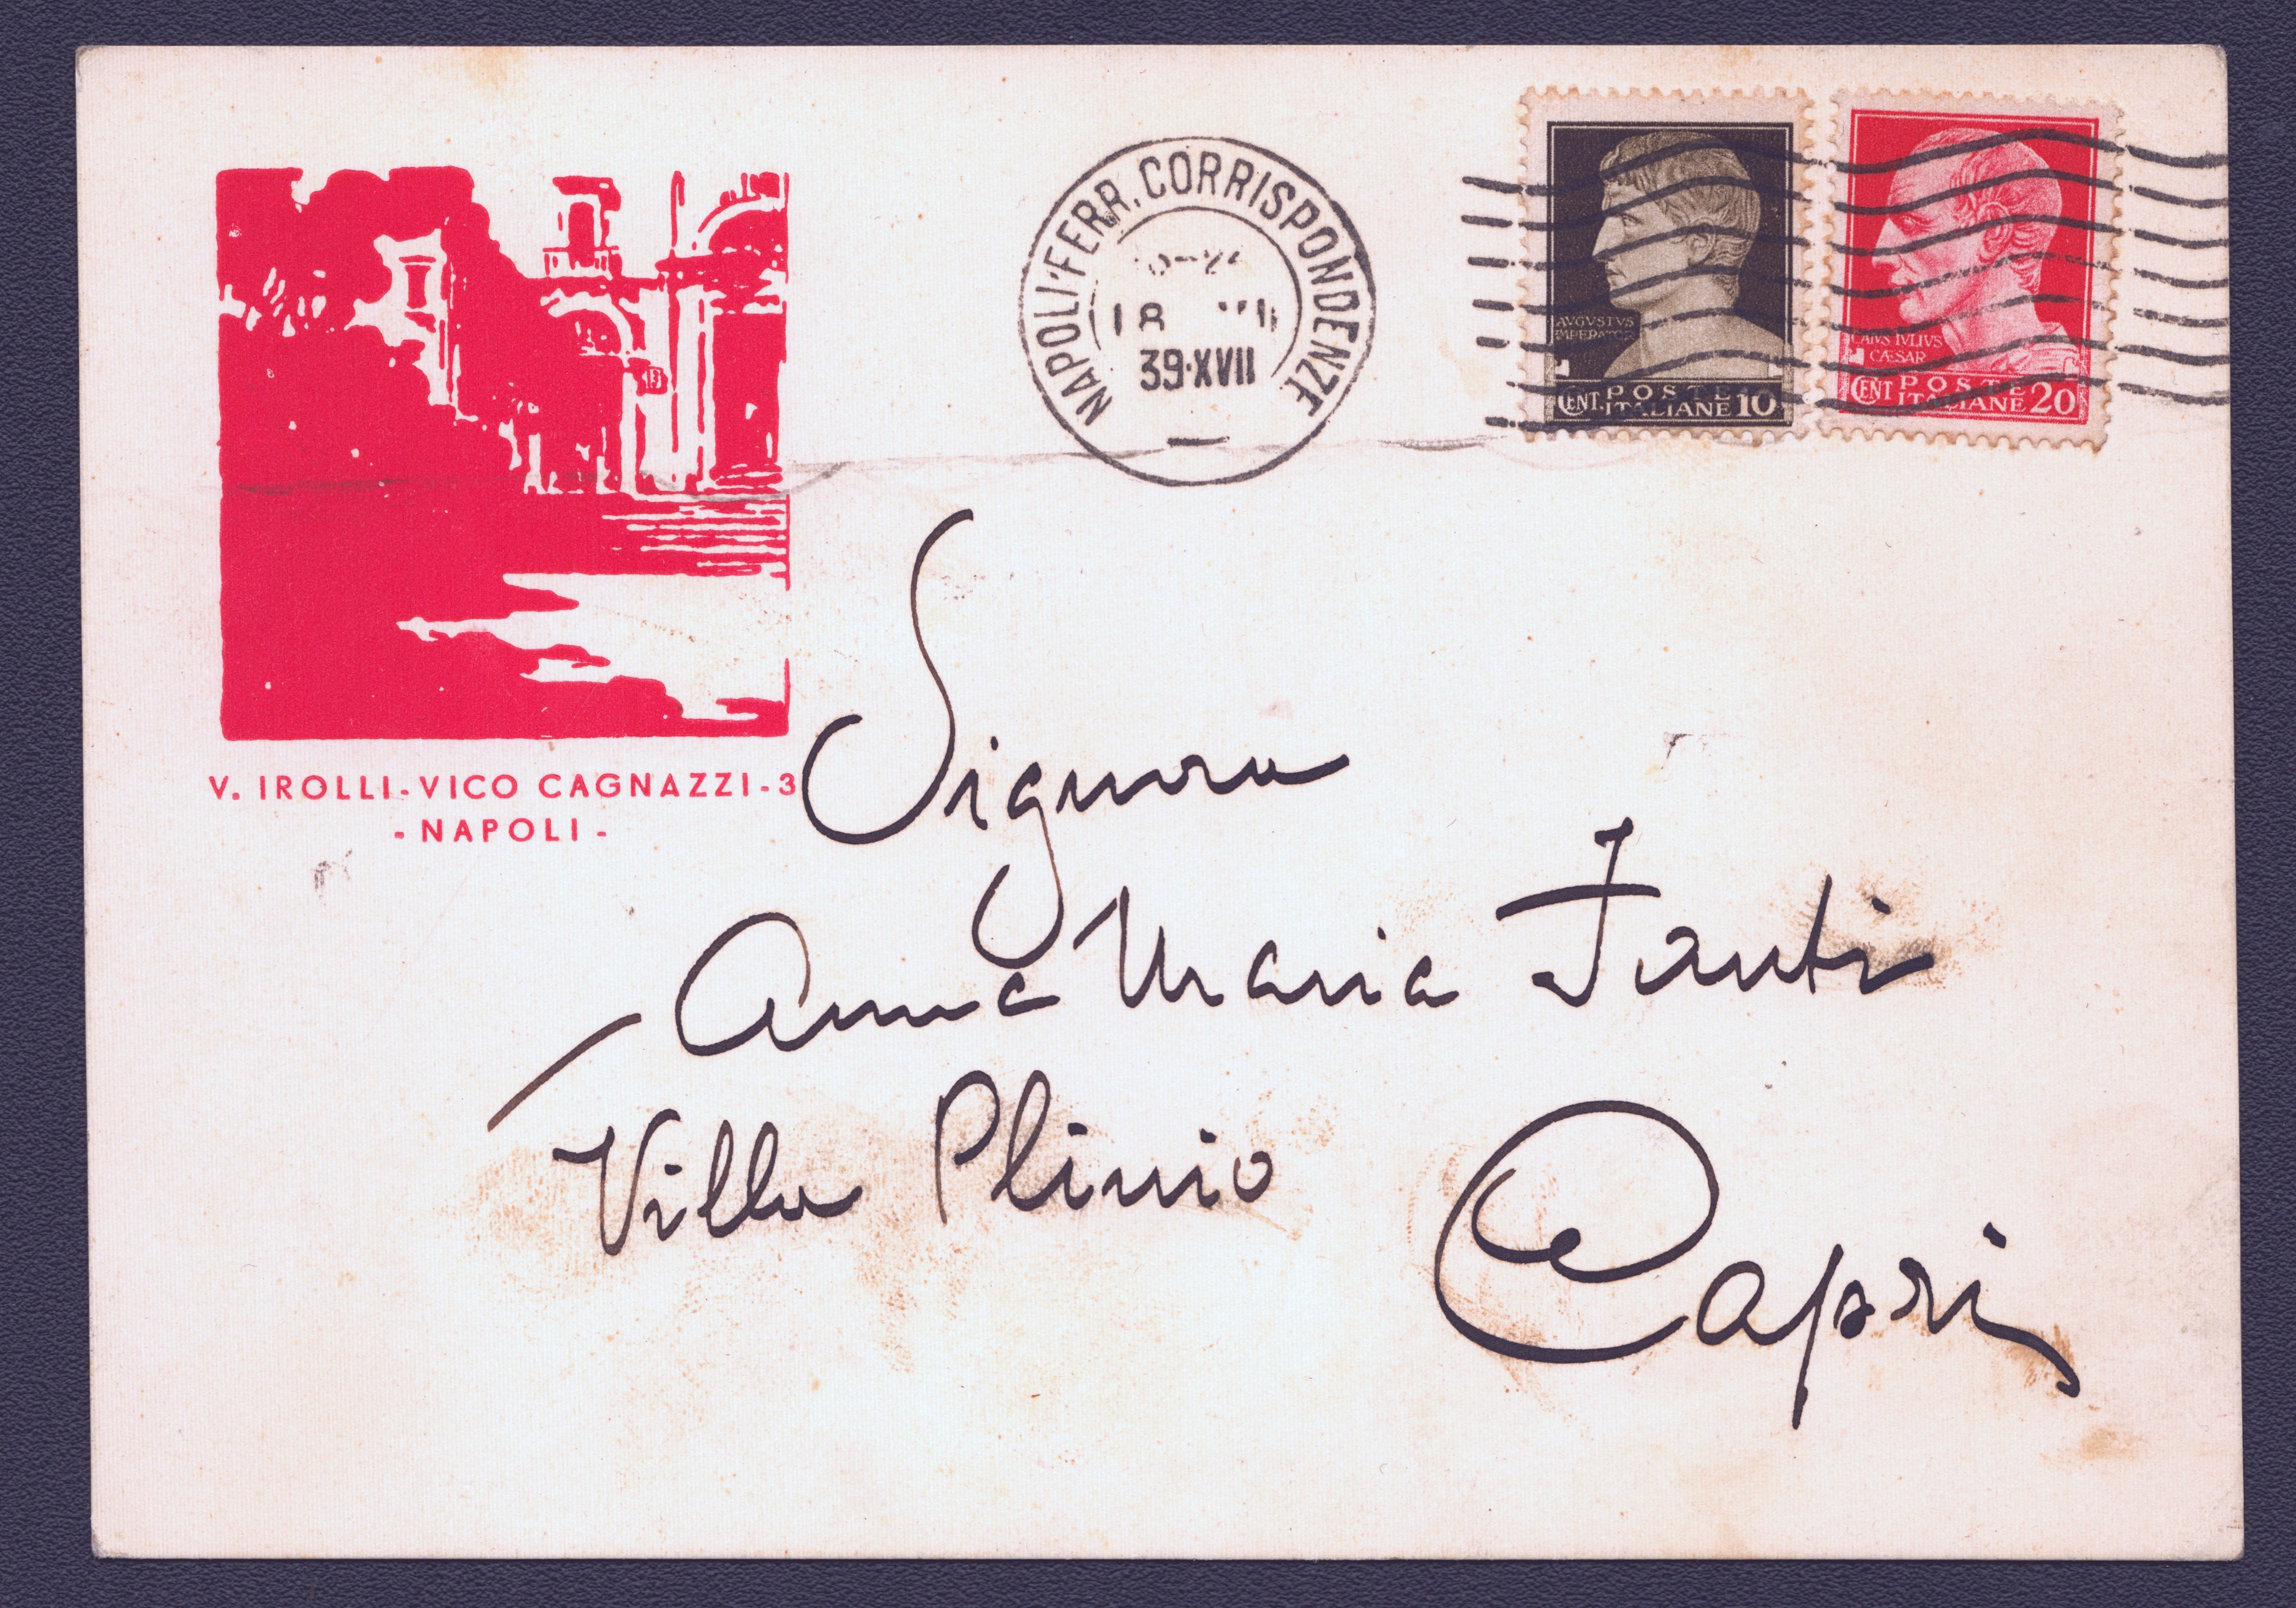 NAPOLI FERR. CORRISPONDENZE
18
39·XVII
AVGVSTVS
IMPERATOR
CENT. POSTE ITALIANE 10
CAIVS IVLIVS
CÆSAR
CENT POSTE ITALIANE 20
V. IROLLI-VICO CAGNAZZI-3
-NAPOLI-
Signora
Anna Maria Fanti
Villa Plinio
Capri